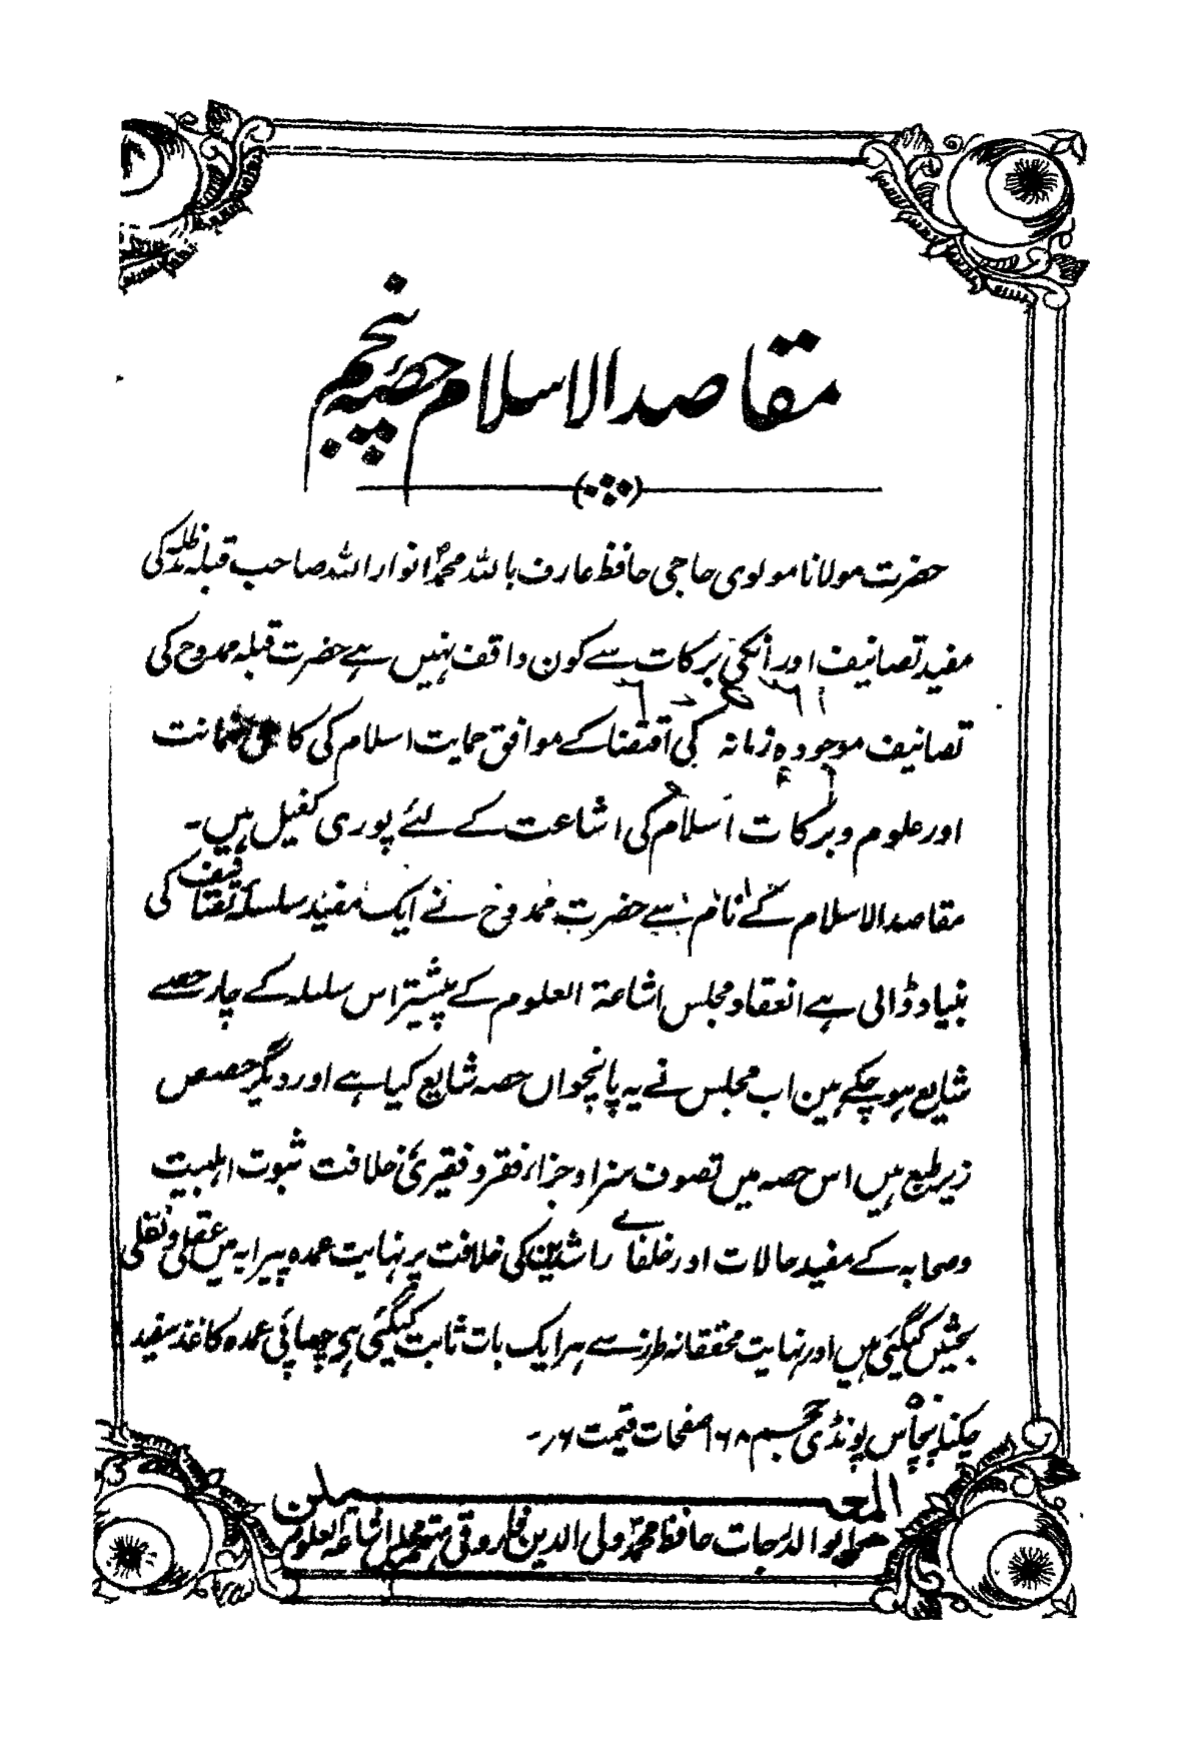 مقاصد الاسلام حصہ پنجم
حضرت مولانا مولوی حاجی حافظ عارف باللہ محمد انوار اللہ صاحب قبلہ مدظلہ کی
مفید تصانیف اور انکی برکات سے کون واقف نہیں ہے حضرت قبلہ ممدوح کی
تصانیف موجودہ زمانہ کی اقتضا کے موافق حمایت اسلام کی کامل ضمانت
اور علوم و برکات اسلام کی اشاعت کے لئے پوری کفیل ہیں۔
مقاصد الاسلام کے نام سے حضرت ممدوح نے ایک مفید سلسلہ تصانیف کی
بنیاد ڈالی ہے انعقاد مجلس اشاعۃ العلوم کے پیشتر اس سلسلہ کے چار حصے
شایع ہو چکے ہین اب مجلس نے یہ پانچواں حصہ شایع کیا ہے اور دیگر حصص
زیر طبع ہیں اس حصہ میں تصوف سزا و جزاء فقر و فقیری خلافت ثبوت اہلبیت
و صحابہ کے مفید حالات اور خلفائے راشدین کی خلافت پر نہایت عمدہ پیرایہ میں عقلی و نقلی
بحثیں کیگئی ہیں اور نہایت محققانہ طرز سے ہر ایک بات ثابت کیگئی ہی چھپائی عمدہ کاغذ سفید
چکنا پچاس پونڈی حجم ۱۶۸ صفحات قیمت ۶ر۔
المعلن
ابو الدرجات حافظ محمد ولی الدین فاروقی مہتمم مجلس اشاعۃ العلوم